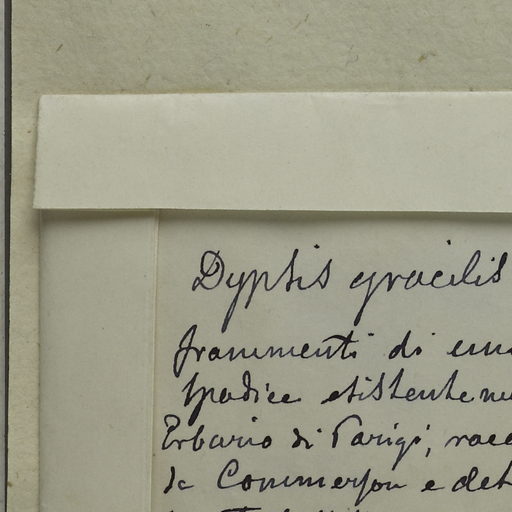 Dypsis gracilis
frammenti di uno
spadice esistente ne
Erbario di Parigi, racc
da Commerson e det